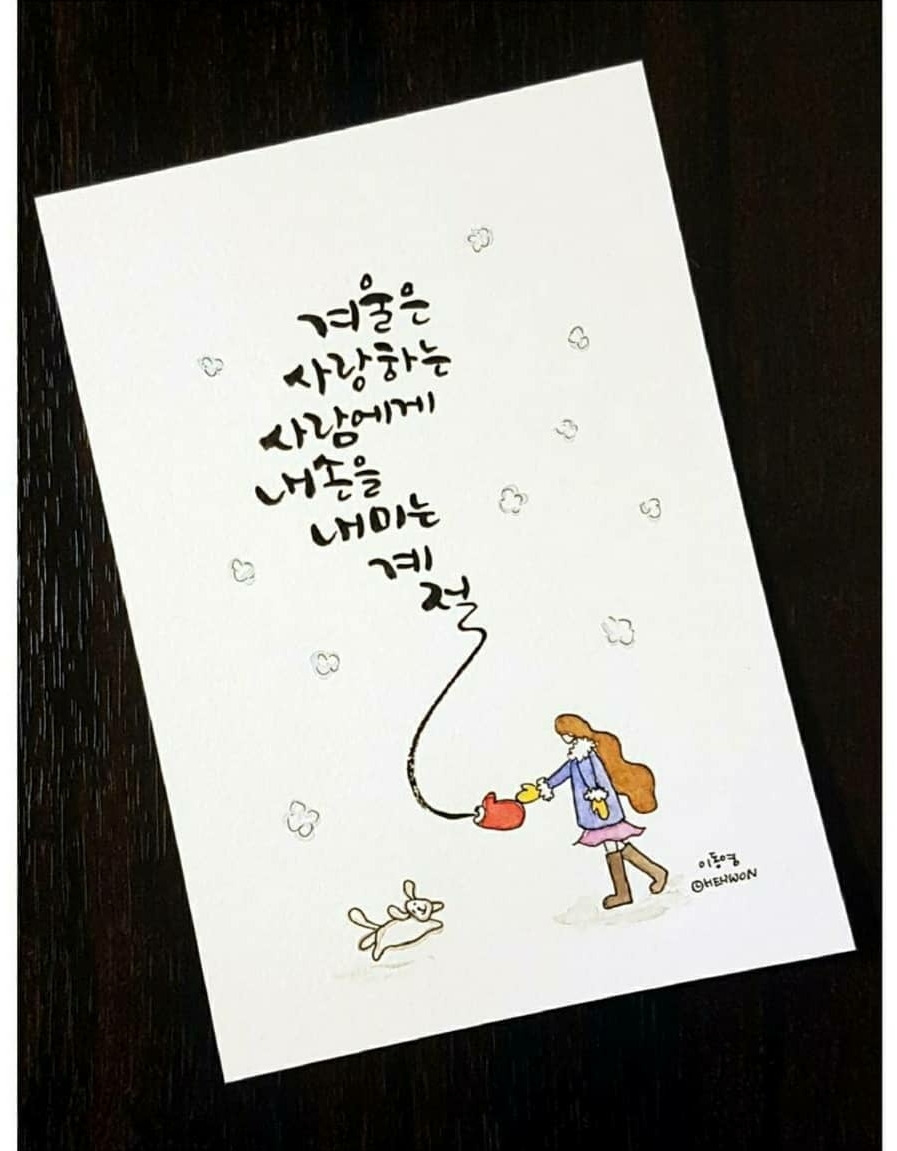 겨울은
사랑하는
사람에게
내 손을
내미는
계
절
이동영
©HEHWON